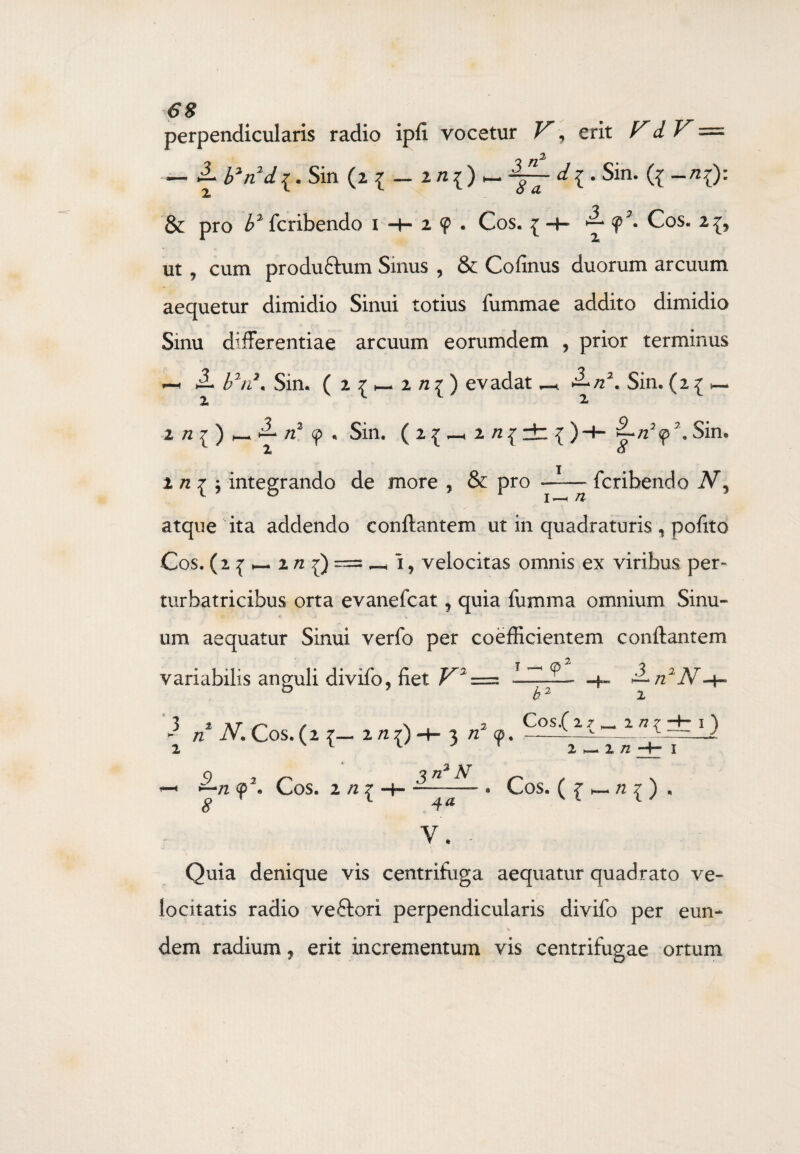 68
perpendicularis radio ipſi vocetur V, erit V d V =
— 3/2 b²n²dζ. Sin (2 ζ — 2 nζ) — 3n²/8a dζ. Sin. (ζ — nζ):
& pro b² ſcribendo 1 + 2 φ . Cos. ζ + 3/2 φ². Cos. 2ζ,
ut , cum productum Sinus , & Coſinus duorum arcuum
aequetur dimidio Sinui totius ſummae addito dimidio
Sinu differentiae arcuum eorumdem , prior terminus
— 3/2 b²n². Sin. ( 2 ζ — 2 nζ ) evadat — 3/2 n². Sin. (2 ζ —
2 n ζ ) — 3/2 n² φ . Sin. ( 2 ζ — 2 n ζ ± ζ ) + 9/8 n² φ². Sin.
2 n ζ ; integrando de more , & pro 1/(1 — n) ſcribendo N,
atque ita addendo conſtantem ut in quadraturis , poſito
Cos. (2 ζ — 2 n ζ) = — 1, velocitas omnis ex viribus per-
turbatricibus orta evaneſcat , quia ſumma omnium Sinu-
um aequatur Sinui verſo per coëfficientem conſtantem
variabilis anguli diviſo, fiet V² = (1 — φ²)/b² + 3/2 n² N +
3/2 n² N. Cos. (2 ζ — 2 nζ) + 3 n² φ. Cos.( 2 ζ — 2 n ζ ± 1 )/(2 — 2 n ± 1)
— 9/8 n φ². Cos. 2 n ζ + 3 n² N/4a . Cos. ( ζ — n ζ ) .
V.
Quia denique vis centrifuga aequatur quadrato ve-
locitatis radio vectori perpendicularis diviſo per eun-
dem radium , erit incrementum vis centrifugae ortum